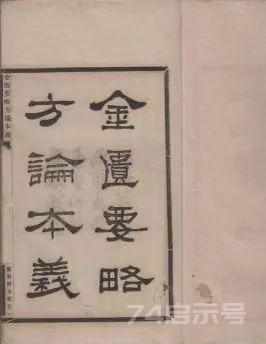 金匱要略
方論本義
74启示号